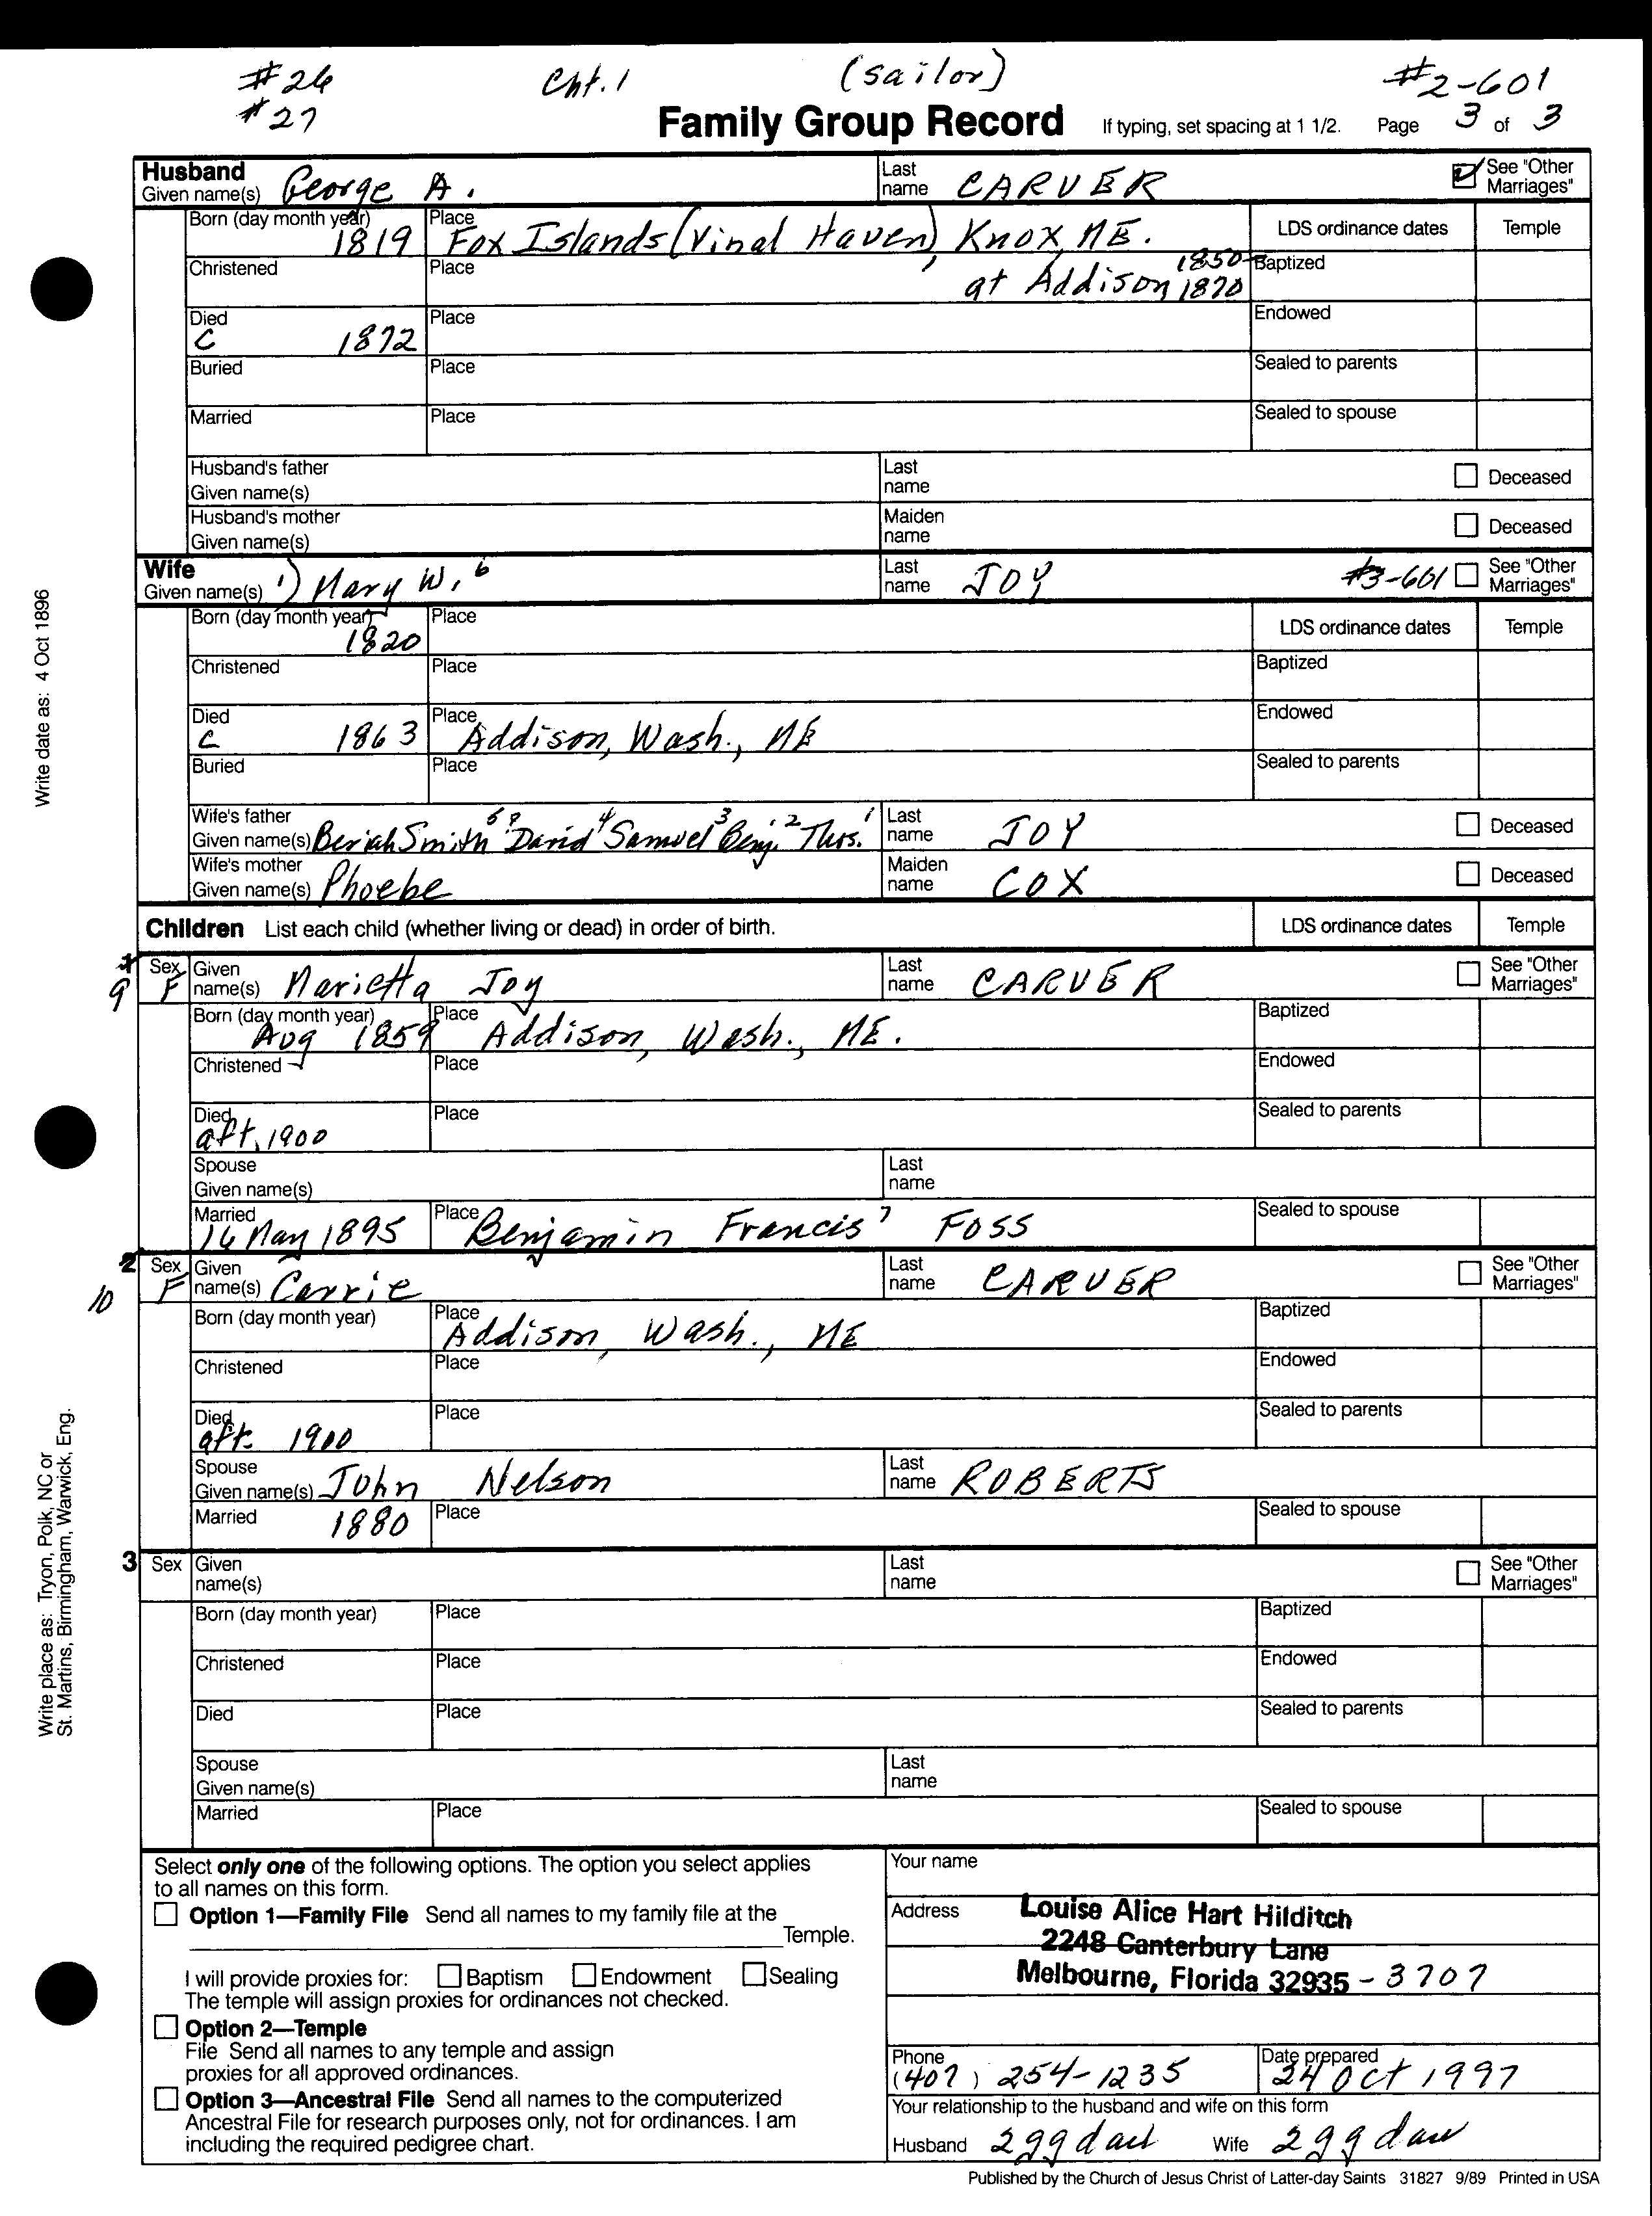 #26 Cht. 1 (sailor) #2-601
#27 Family Group Record If typing, set spacing at 1 1/2. Page 3 of 3
Husband Last See "Other
Given name(s) George A. name CARVER Marriages"
Born (day month year) Place LDS ordinance dates Temple
1819 Fox Islands (Vinal Haven), Knox, ME.
Christened Place 1850- Baptized
at Addison 1870
Died Place Endowed
C 1872
Buried Place Sealed to parents
Married Place Sealed to spouse
Husband's father Last Deceased
Given name(s) name
Husband's mother Maiden Deceased
Given name(s) name
Wife Last See "Other
Given name(s) 1) Mary W. 6 name JOY #3-601 Marriages"
Born (day month year) Place LDS ordinance dates Temple
1820
Christened Place Baptized
Died Place Endowed
C 1863 Addison, Wash., ME
Buried Place Sealed to parents
Wife's father Last Deceased
Given name(s) Beriah Smith 5? David 4 Samuel 3 Benj. 2 Thos. 1 name JOY
Wife's mother Maiden Deceased
Given name(s) Phoebe name COX
Children List each child (whether living or dead) in order of birth. LDS ordinance dates Temple
1 Sex Given Last See "Other
9 F name(s) Marietta Joy name CARVER Marriages"
Born (day month year) Place Baptized
Aug 1859 Addison, Wash., ME.
Christened Place Endowed
Died Place Sealed to parents
aft. 1900
Spouse Last
Given name(s) name
Married Place Sealed to spouse
16 May 1895 Benjamin Francis 7 FOSS
2 Sex Given Last See "Other
10 F name(s) Carrie name CARVER Marriages"
Born (day month year) Place Baptized
Addison, Wash., ME
Christened Place Endowed
Died Place Sealed to parents
aft. 1900
Spouse Last
Given name(s) John Nelson name ROBERTS
Married 1880 Place Sealed to spouse
3 Sex Given Last See "Other
name(s) name Marriages"
Born (day month year) Place Baptized
Christened Place Endowed
Died Place Sealed to parents
Spouse Last
Given name(s) name
Married Place Sealed to spouse
Write date as: 4 Oct 1896
Write place as: Tryon, Polk, NC or
St. Martins, Birmingham, Warwick, Eng.
Select only one of the following options. The option you select applies
to all names on this form.
Option 1—Family File Send all names to my family file at the
Temple.
I will provide proxies for: Baptism Endowment Sealing
The temple will assign proxies for ordinances not checked.
Option 2—Temple
File Send all names to any temple and assign
proxies for all approved ordinances.
Option 3—Ancestral File Send all names to the computerized
Ancestral File for research purposes only, not for ordinances. I am
including the required pedigree chart.
Your name
Address Louise Alice Hart Hilditch
2248 Canterbury Lane
Melbourne, Florida 32935 - 3707
Phone Date prepared
(407) 254-1235 24 Oct 1997
Your relationship to the husband and wife on this form
Husband 2ggdau Wife 2ggdau
Published by the Church of Jesus Christ of Latter-day Saints 31827 9/89 Printed in USA